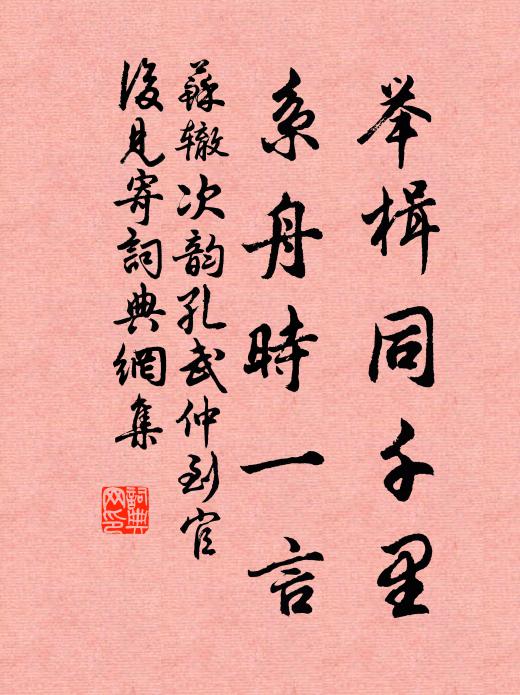 举楫同千里
系舟時一言
蘇辙次韵孔武仲到官
後見寄詞典網集
詞典
网印